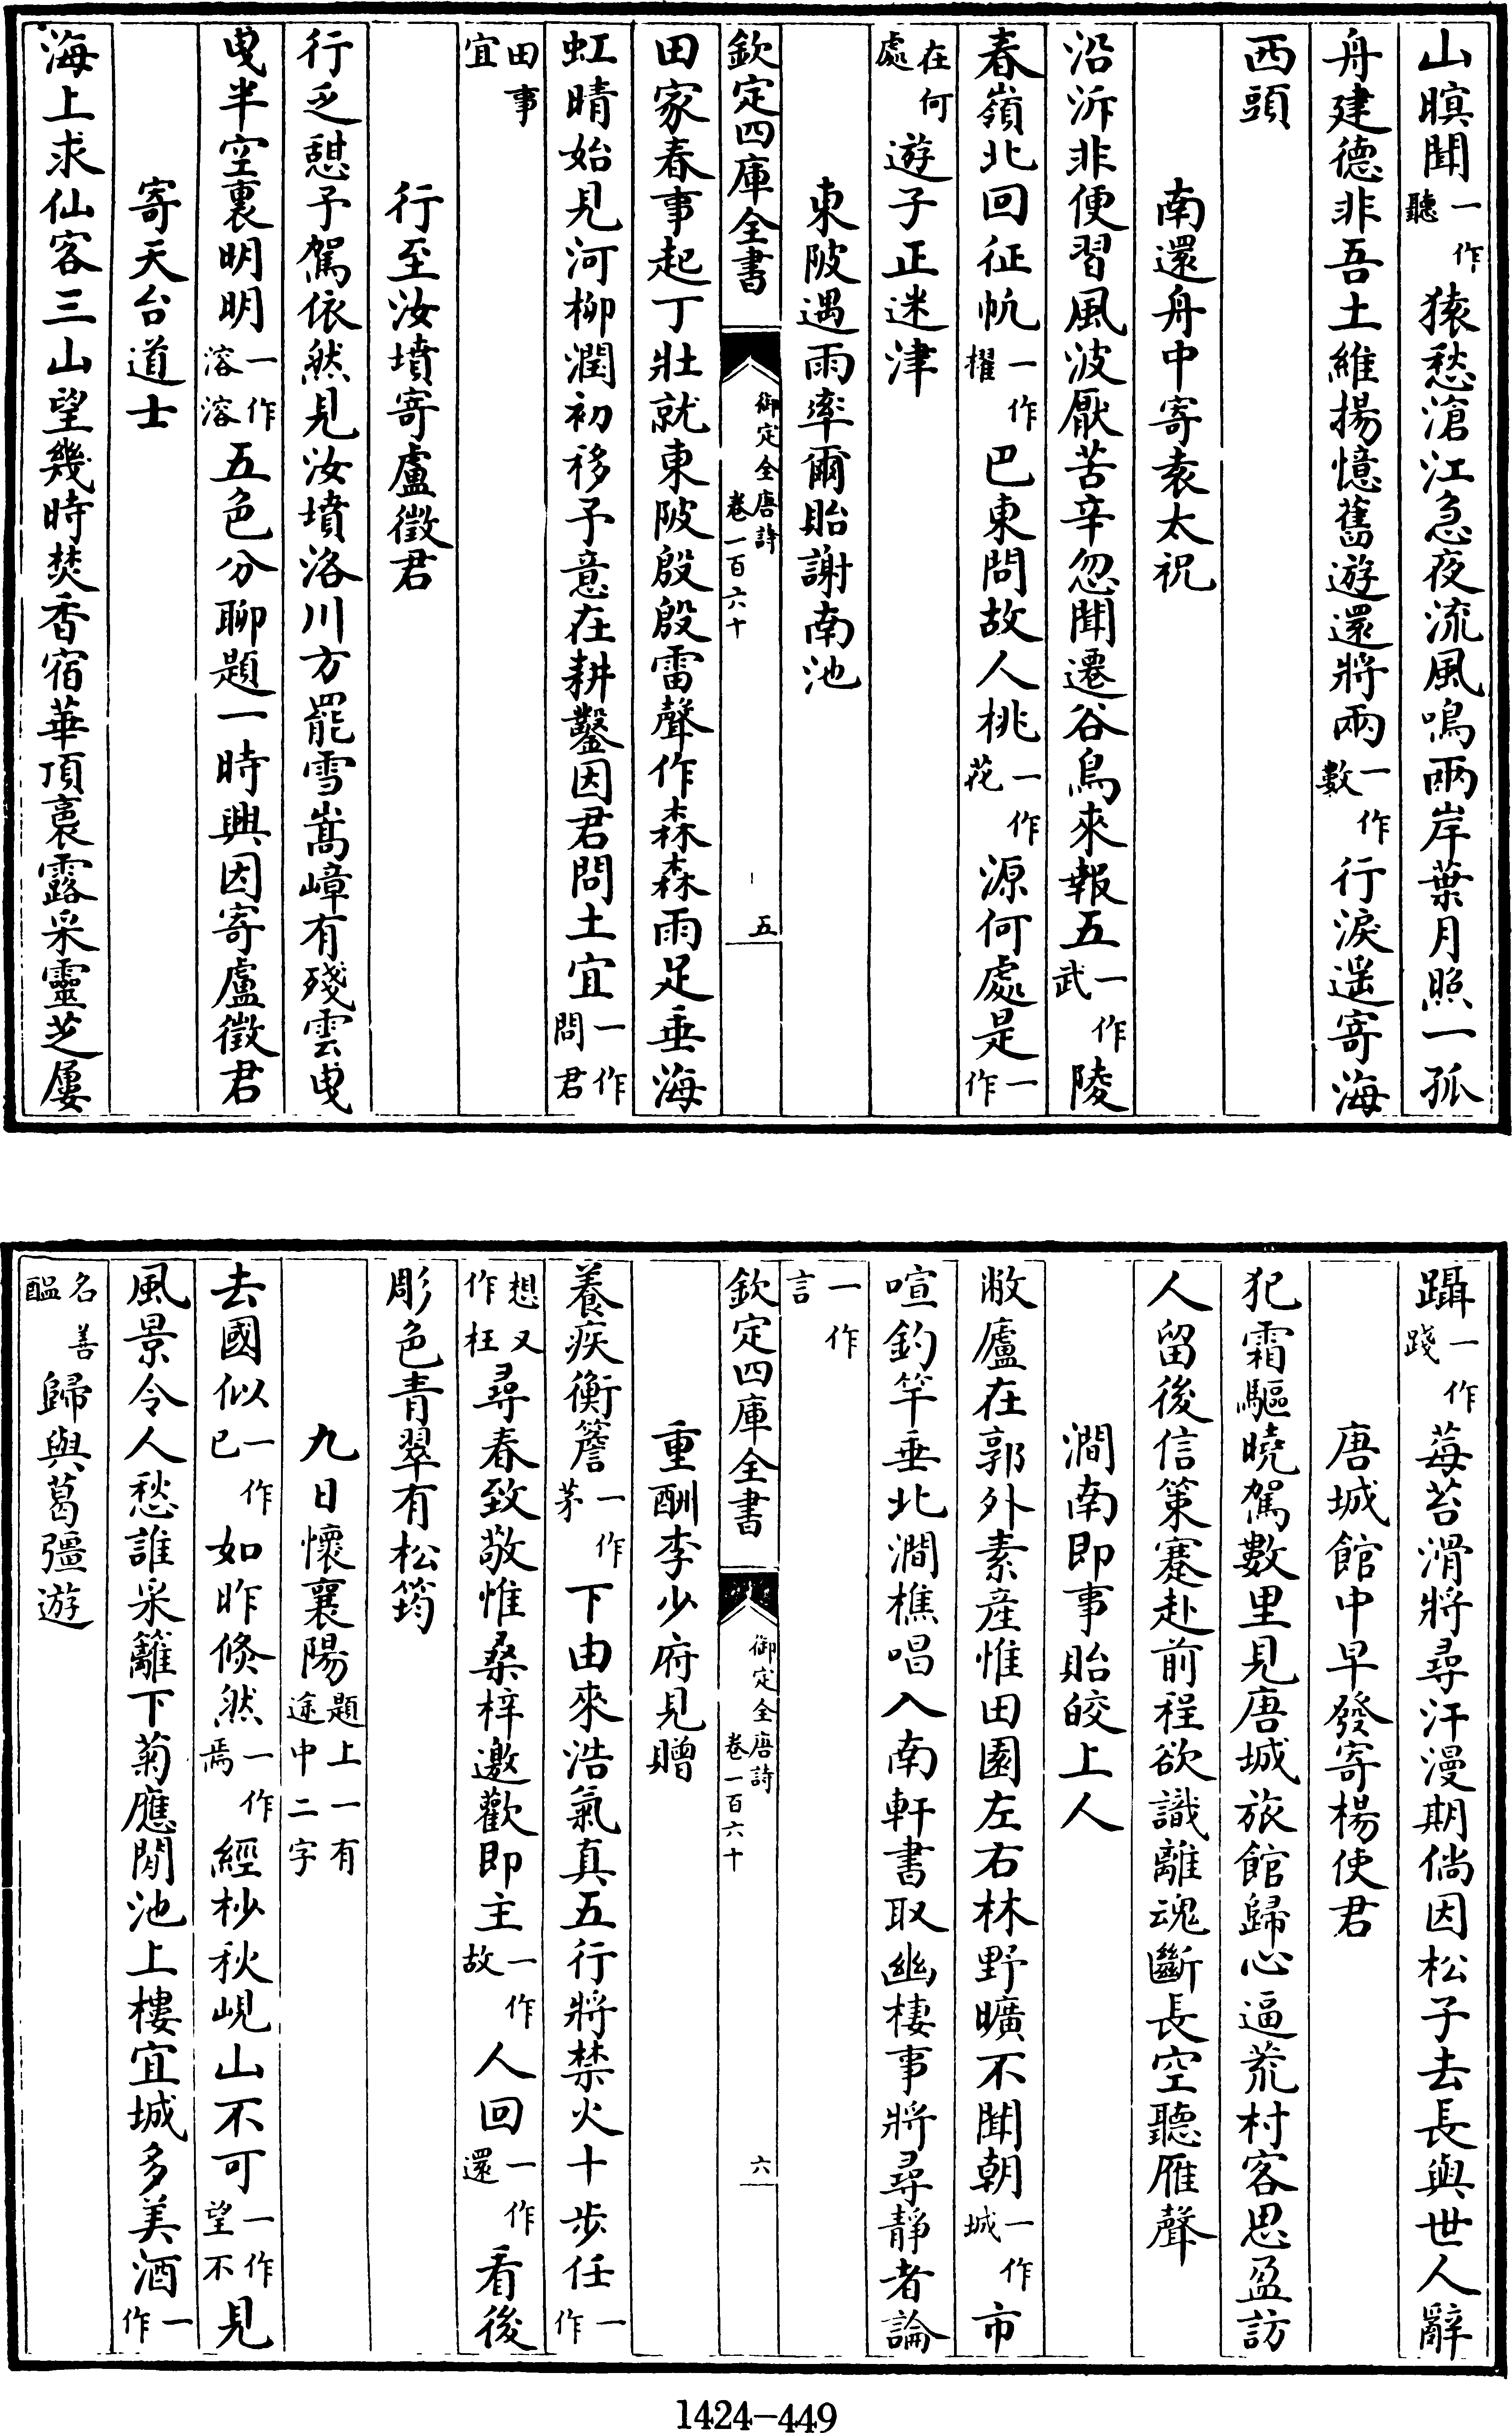 山暝聞一作聽猿愁滄江急夜流風鳴兩岸葉月照一孤
舟建德非吾土維揚憶舊遊還將兩一作數行淚遥寄海
西頭
南還舟中寄袁太祝
沿泝非便習風波厭苦辛忽聞遷谷鳥來報五一作武陵
春嶺北回征帆一作櫂巴東問故人桃一作花源何處是一作
在何處遊子正迷津
東陂遇雨率爾貽謝南池
欽定四庫全書 御定全唐詩卷一百六十 五
田家春事起丁壯就東陂殷殷雷聲作森森雨足垂海
虹晴始見河柳潤初移予意在耕鑿因君問土宜一作問君
田事宜
行至汝墳寄盧徵君
行乏憩予駕依然見汝墳洛川方罷雪嵩嶂有殘雲曳
曳半空裏明明一作溶溶五色分聊題一時興因寄盧徵君
寄天台道士
海上求仙客三山望幾時焚香宿華頂裛露采靈芝屢
躡一作踐莓苔滑將尋汗漫期倘因松子去長與世人辭
唐城館中早發寄楊使君
犯霜驅曉駕數里見唐城旅館歸心逼荒村客思盈訪
人留後信策蹇赴前程欲識離魂斷長空聽雁聲
澗南即事貽皎上人
敝廬在郭外素産惟田園左右林野曠不聞朝一作城市
喧釣竿垂北澗樵唱入南軒書取幽棲事將尋靜者論
一作言
欽定四庫全書 御定全唐詩卷一百六十 六
重酬李少府見贈
養疾衡簷一作茅下由來浩氣真五行將禁火十步任一作
想又作枉尋春致敬惟桑梓邀歡即主一作故人回一作還看後
彫色青翠有松筠
九日懷襄陽題上一有途中二字
去國似一作已如昨倐然一作焉經杪秋峴山不可一作望不見
風景令人愁誰采籬下菊應閒池上樓宜城多美酒一作
名善醖歸與葛彊遊
1424-449